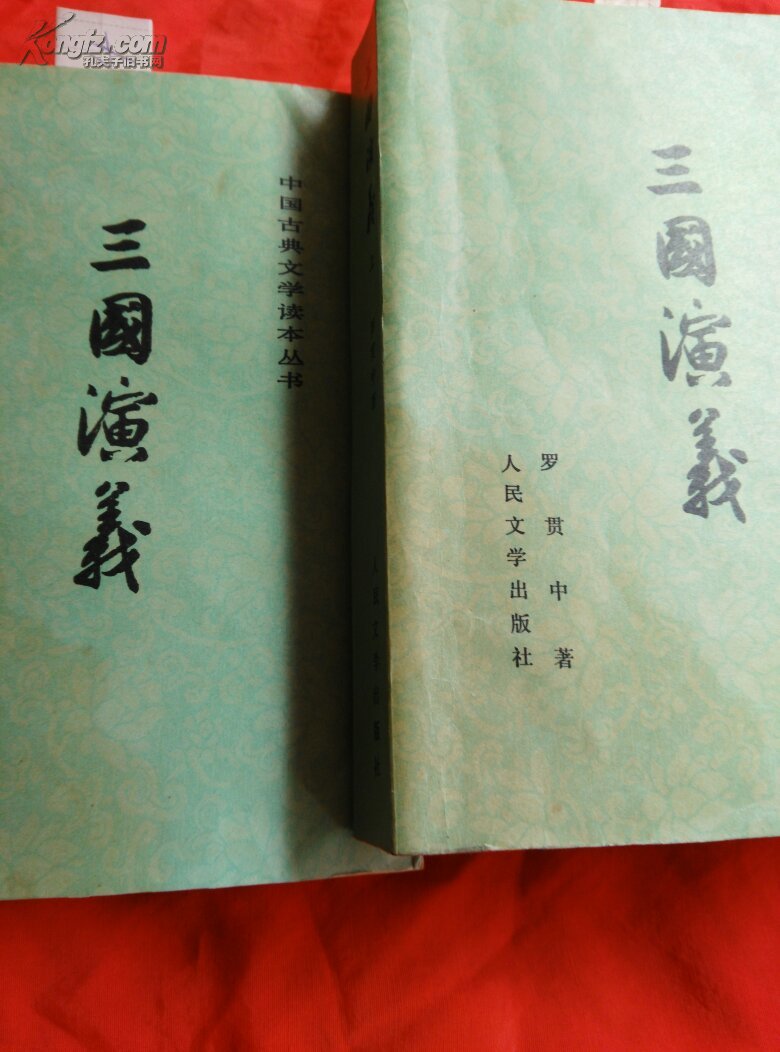 Kongfz.com
孔夫子旧书网
中国古典文学读本丛书
三國演義
三國演義
罗贯中著
人民文学出版社
人民文学出版社